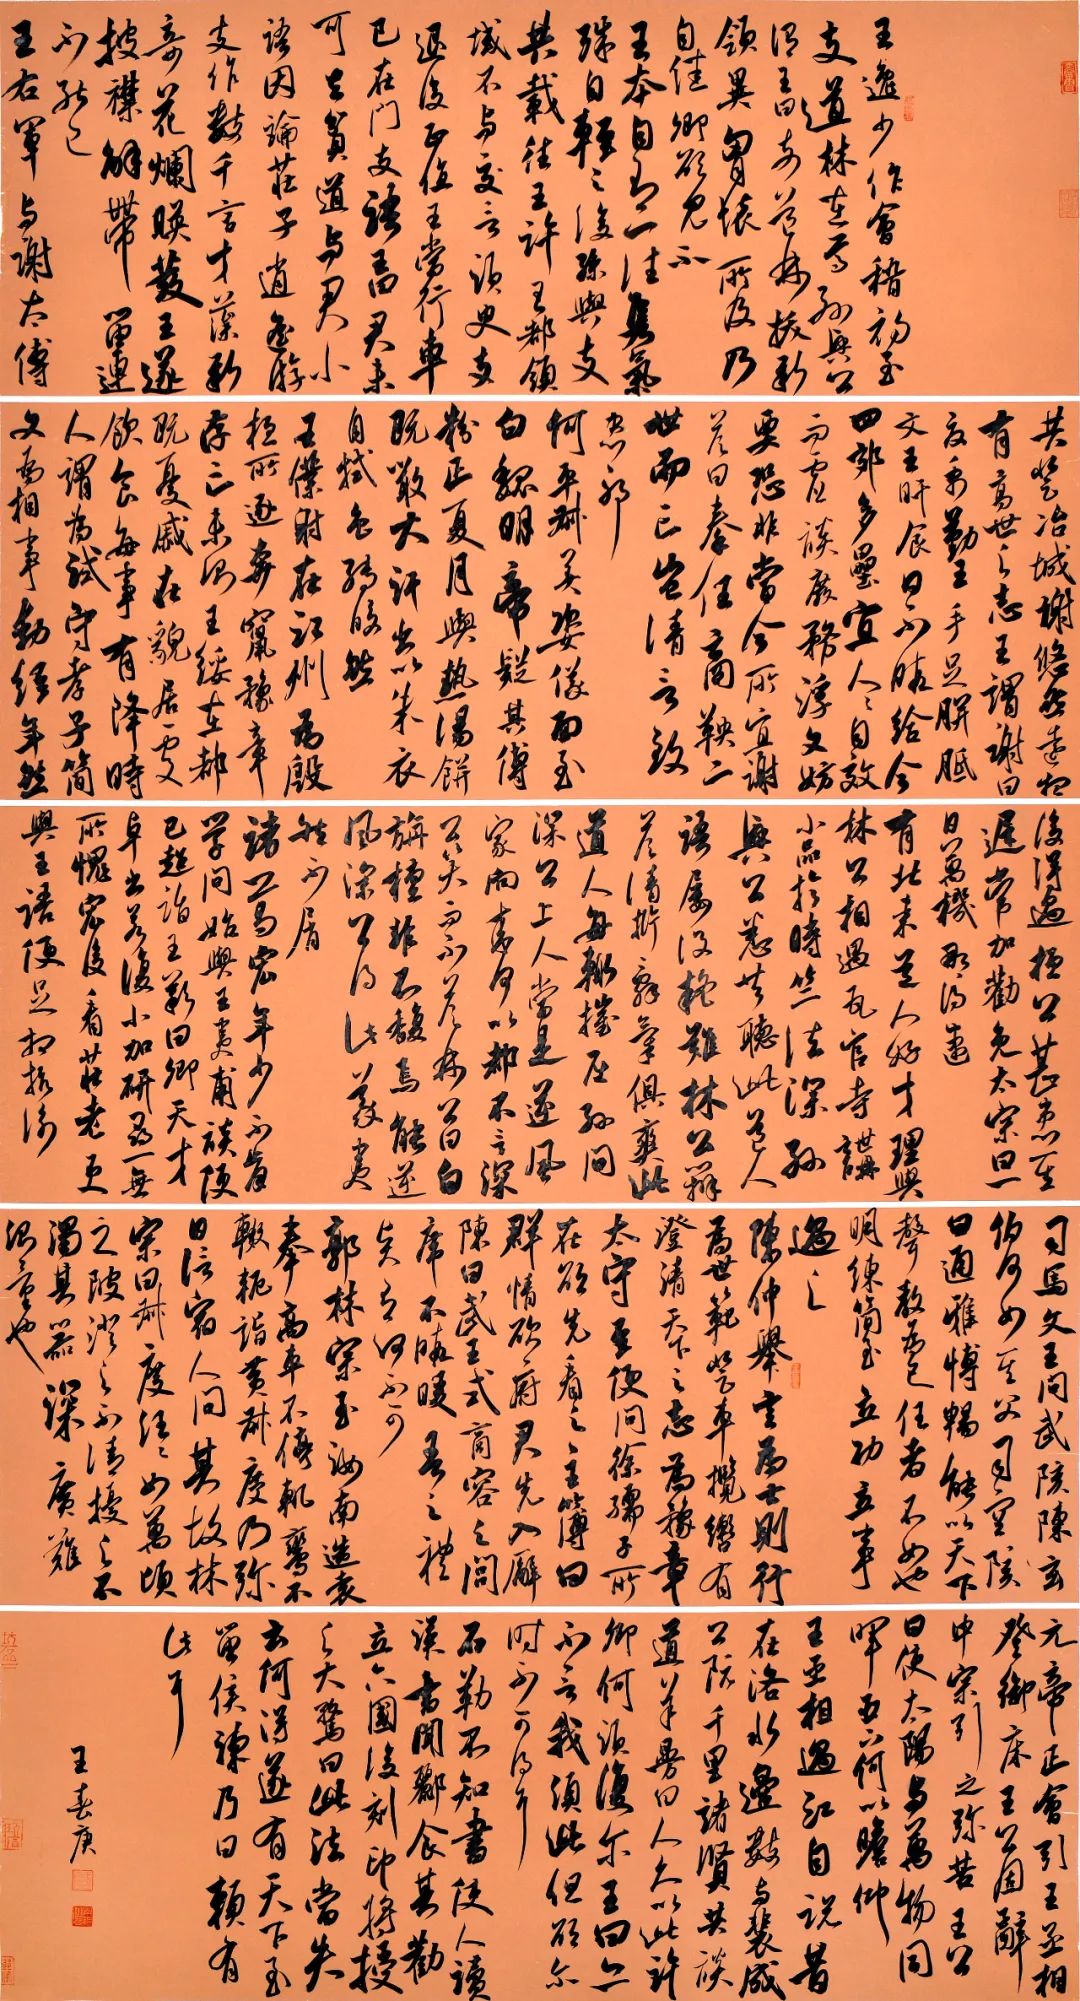 王逸少作會稽初至
支道林在焉孫興公
謂王曰支道林拔新
領異胷懷所及乃
自佳卿欲見不
王本自有一往雋氣
殊自輕之後孫與支
共載往王許王都領
域不與交言須臾支
退後正值王當行車
已在門支語王曰君未
可去貧道與君小
語因論莊子逍遙游
支作數千言才藻新
奇花爛暎發王遂
披襟解帶留連
不能已
王右軍与謝太傅
共登冶城謝悠然遠想
有高世之志王謂謝曰
夏禹勤王手足胼胝
文王旰食日不暇給今
四郊多壘宜人人自效
而虛談廢務浮文妨
要恐非當今所宜謝
答曰秦任商鞅二
世而亡豈清言致
患邪
何平叔美姿儀面至
白魏明帝疑其傅
粉正夏月與熱湯餅
既噉大汗出以朱衣
自拭色轉皎然
王僕射在江州為殷
桓所逐奔竄豫章
存亡未測王綏在都
既憂戚在貌居處
飲食每事有降時
人謂為試守孝子簡
文為相事動經年然
後得過桓公甚患其
遲常加勸免太宗曰一
日萬機那得速
有北來道人好才理與
林公相遇瓦官寺講
小品於時竺法深孫
興公悉共聽此道人
語屢設疑難林公辯
答清析辭氣俱爽此
道人每輒摧屈孫問
深公上人當是逆風
家向來何以都不言深
公笑而不答林公曰白
旃檀非不馥焉能逆
風深公得此義夷
然不屑
諸葛宏年少不肯
學問始與王夷甫談便
已超詣王歎曰卿天才
卓出若復小加研尋一無
所愧宏後看莊老更
與王語便足相抗衡
司馬文王問武陔陳玄
伯何如其父司空陔
曰通雅博暢能以天下
聲教為己任者不如也
明練簡至立功立事
過之
陳仲舉言為士則行
為世範登車攬轡有
澄清天下之志為豫章
太守至便問徐孺子所
在欲先看之主簿曰
群情欲府君先入廨
陳曰武王式商容之閭
席不暇暖吾之禮
賢有何不可
郭林宗至汝南造袁
奉高車不停軌鸞不
輟軛詣黃叔度乃彌
日信宿人問其故林
宗曰叔度汪汪如萬頃
之陂澄之不清擾之不
濁其器深廣難
測量也
元帝正會引王丞相
登御床王公固辭
中宗引之彌苦王公
曰使太陽与萬物同
暉臣下何以瞻仰
王丞相過江自說昔
在洛水邊數与裴成
公阮千里諸賢共談
道羊曼曰人久以此許
卿何須復尔王曰亦
不言我須此但欲尔
時不可得耳
石勒不知書使人讀
漢書聞酈食其勸
立六國後刻印將授
之大驚曰此法當失
云何得遂有天下至
留侯諫乃曰賴有
此耳
王春庚